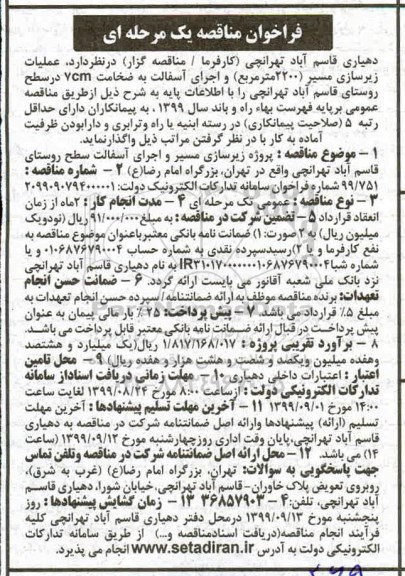 فراخوان مناقصه یک مرحله ای
دهیاری قاسم آباد تهرانچی (کارفرما / مناقصه گزار) درنظردارد، عملیات
زیرسازی مسیر (۲۲۰۰مترمربع) و اجرای آسفالت به ضخامت ۷cm درسطح
روستای قاسم آباد تهرانچی را با اطلاعات پایه به شرح ذیل ازطریق مناقصه
عمومی برپایه فهرست بهاء راه و باند سال ۱۳۹۹ ، به پیمانکاران دارای حداقل
رتبه ۵ (صلاحیت پیمانکاری) در رسته ابنیه یا راه وترابری و دارابودن ظرفیت
آماده به کار با در نظر گرفتن مراتب ذیل واگذارنماید.
۱ – موضوع مناقصه : پروژه زیرسازی مسیر و اجرای آسفالت سطح روستای
قاسم آباد تهرانچی واقع در تهران، بزرگراه امام رضا(ع) ۲ – شماره مناقصه :
۹۹/۷۵۱ شماره فراخوان سامانه تدارکات الکترونیک دولت: ۲۰۹۹۰۹۰۷۹۴۰۰۰۰۰۱
۳ – نوع مناقصه : عمومی تک مرحله ای ۴ – مدت انجام کار : ۲ماه از زمان
انعقاد قرارداد ۵ – تضمین شرکت در مناقصه : به مبلغ۹۱/۰۰۰/۰۰۰ ریال (نودویک
میلیون ریال) به ۲صورت: ۱) ضمانت نامه بانکی معتبرباعنوان موضوع مناقصه به
نفع کارفرما و یا ۲)رسیدسپرده نقدی به شماره حساب ۰۱۰۶۸۷۶۷۹۰۰۴ و یا
شماره شبا به نام دهیاری قاسم آباد تهرانچی
نزد بانک ملی شعبه آقانور می بایست ارائه گردد. ۶ – ضمانت حسن انجام
تعهدات: برنده مناقصه موظف به ارائه ضمانتنامه/ سپرده حسن انجام تعهدات به
مبلغ ۵٪ قرارداد می باشد. ۷ – پیش پرداخت: ۲۵٪ بار مالی پیمان به عنوان
پیش پرداخت در قبال ارائه ضمانت نامه بانکی معتبر قابل پرداخت می باشد.
۸ – برآورد تقریبی پروژه : ۱/۸۱۷/۱۶۸/۰۱۷ ریال(یک میلیارد و هشتصد
وهفده میلیون ویکصد و شصت و هشت هزار و هفده ریال) ۹ – محل تامین
اعتبار : اعتبارات داخلی دهیاری ۱۰ – مهلت زمانی دریافت اسناداز سامانه
تدارکات الکترونیکی دولت : ازساعت ۸:۰۰ مورخ ۱۳۹۹/۰۸/۲۴ لغایت ساعت
۱۴:۰۰ مورخ ۱۳۹۹/۰۹/۰۱ ۱۱ – آخرین مهلت تسلیم پیشنهادها : آخرین مهلت
تسلیم (ارائه) پیشنهادها وارائه اصل ضمانتنامه شرکت در مناقصه به دهیاری
قاسم آباد تهرانچی،پایان وقت اداری روزچهارشنبه مورخ ۱۳۹۹/۰۹/۱۲ (ساعت
۱۴) می باشد. ۱۲ – محل ارائه اصل ضمانتنامه شرکت در مناقصه وتلفن تماس
جهت پاسخگویی به سوالات: تهران، بزرگراه امام رضا(ع) (غرب به شرق)،
روبروی تعویض پلاک خاوران – قاسم آباد تهرانچی،خیابان شورا، دهیاری قاسم
آباد تهرانچی، تلفن:۴ – ۳۶۸۵۷۹۰۳ ۱۳ – زمان گشایش پیشنهادها : روز
پنجشنبه مورخ ۱۳۹۹/۰۹/۱۳ درمحل دفتر دهیاری قاسم آباد تهرانچی کلیه
فرآیند انجام مناقصه(دریافت اسنادمناقصه و...) از طریق سامانه تدارکات
الکترونیکی دولت به آدرس www.setadiran.ir انجام می پذیرد.